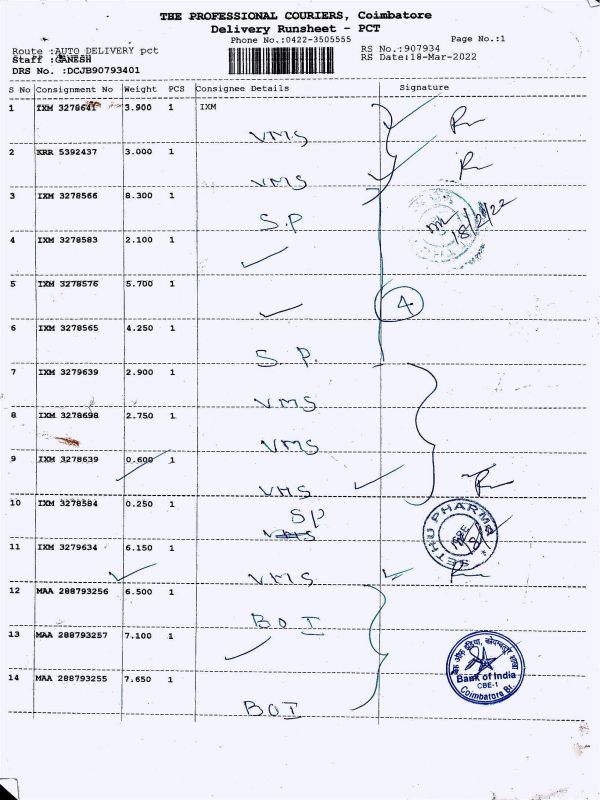 THE PROFESSIONAL COURIERS, Coimbatore
Delivery Runsheet - PCT
Phone No.:0422-3505555
Page No.:1
Route :AUTO DELIVERY pct
RS No.:907934
Staff :GANESH
RS Date:18-Mar-2022
DRS No. :DCJB90793401
S No Consignment No Weight PCS Consignee Details Signature
1 IXM 3278641 3.900 1 IXM
VMS
2 KRR 5392437 3.000 1
VMS
3 IXM 3278566 8.300 1
S.P
4 IXM 3278583 2.100 1
18/3/22
5 IXM 3278576 5.700 1
4
6 IXM 3278565 4.250 1
S.P.
7 IXM 3279639 2.900 1
VMS
8 IXM 3278698 2.750 1
VMS
9 IXM 3278639 0.600 1
VMS
10 IXM 3278584 0.250 1
SP
VMS
SETHU PHARMA
CBE
11 IXM 3279634 6.150 1
VMS
12 MAA 288793256 6.500 1
BOI
13 MAA 288793257 7.100 1
बैंक ऑफ इंडिया, कोयम्बत्तूर शाखा
Bank of India
CBE-1
Coimbatore Br.
14 MAA 288793255 7.650 1
BOI